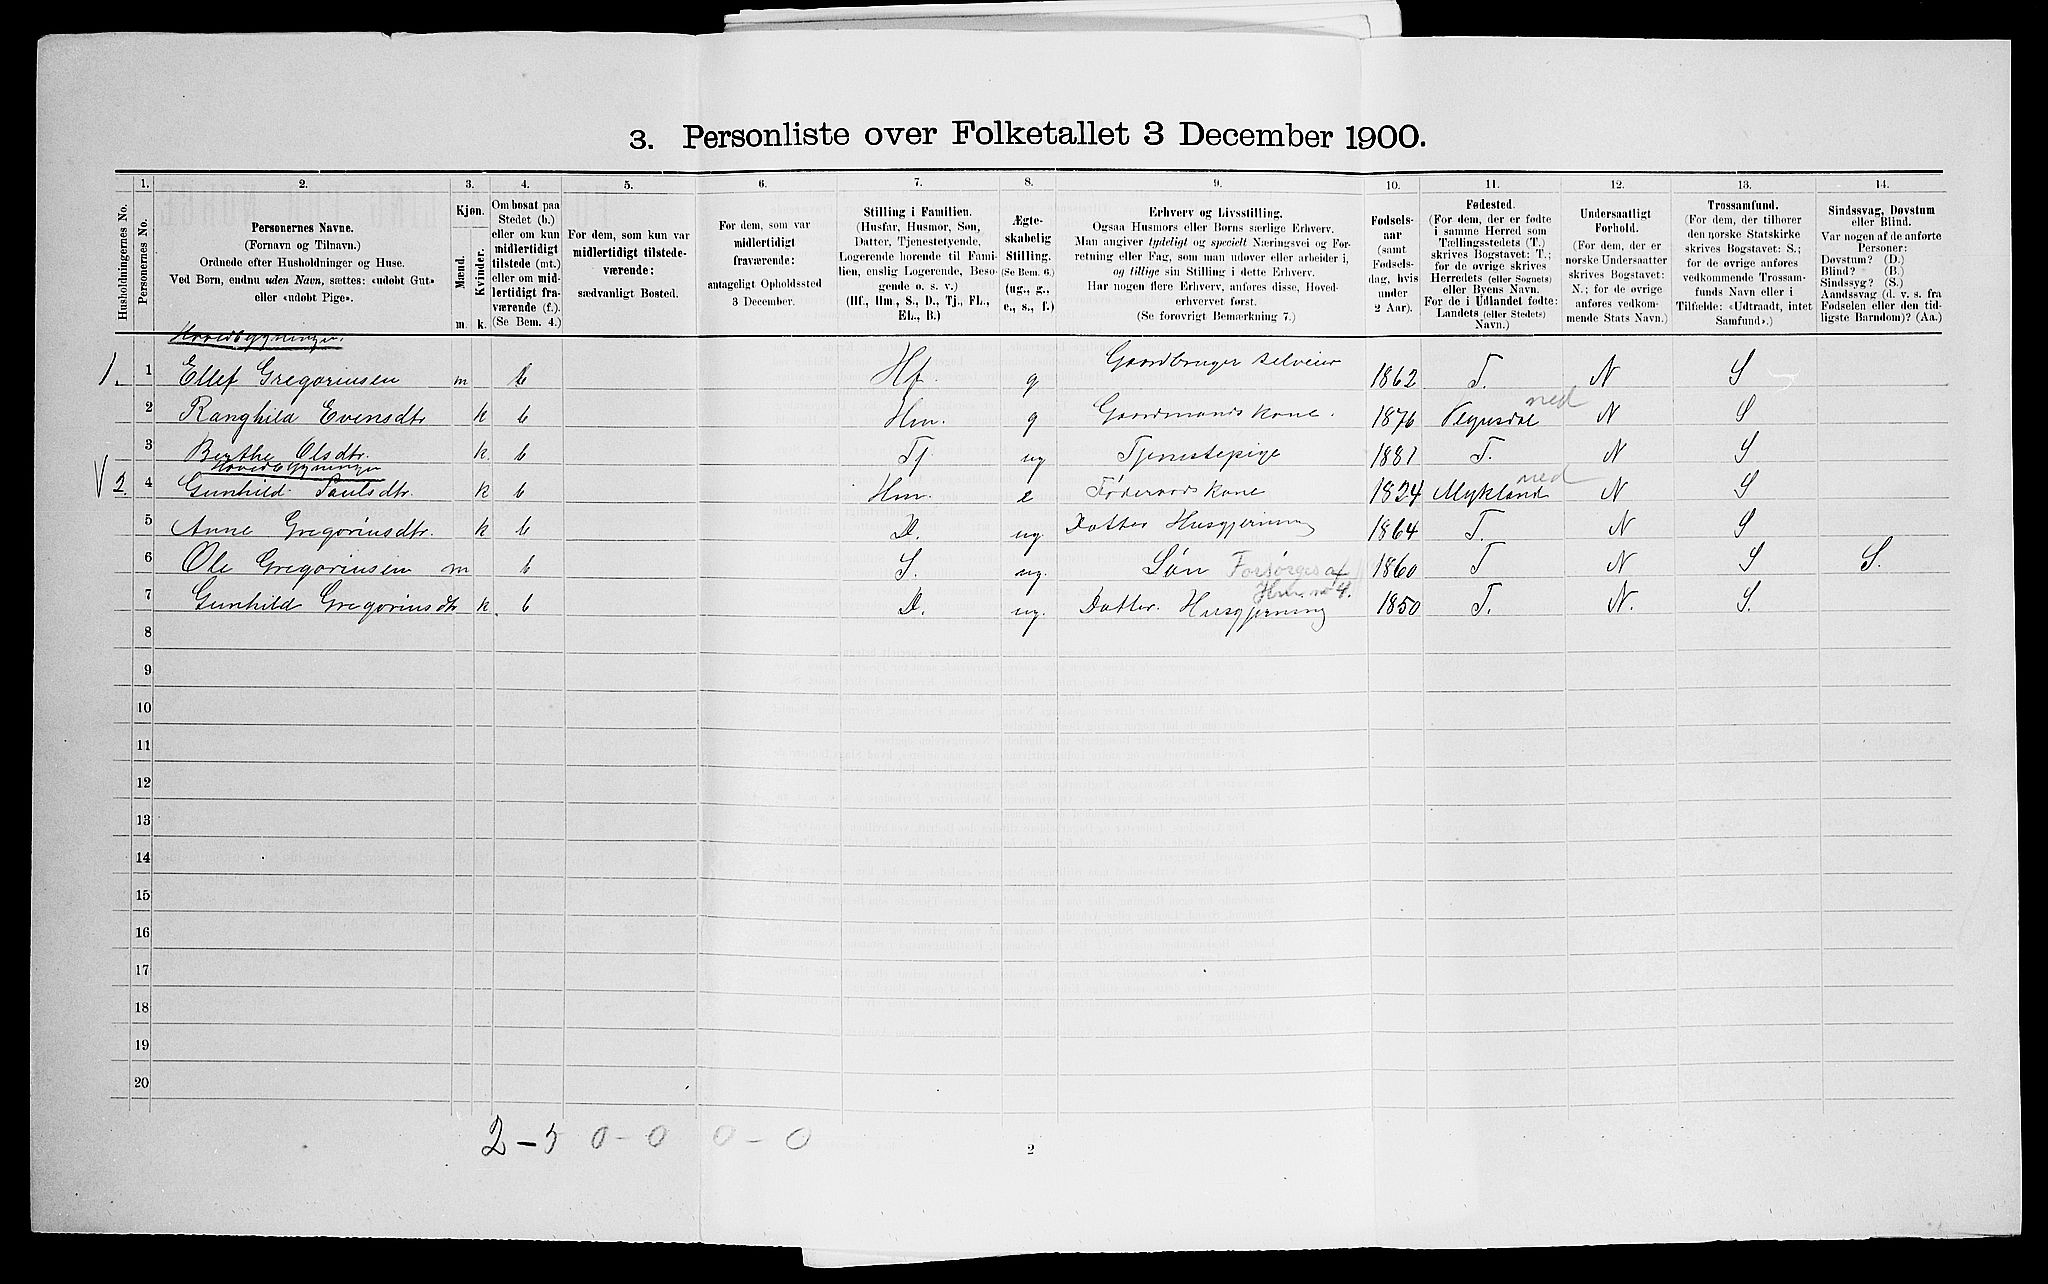 3. Personliste over Folketallet 3 December 1900.
1. 2. 3. 4. 5. 6. 7. 8. 9. 10. 11. 12. 13. 14.
Husholdningernes No.
Personernes No.
Personernes Navne.
(Fornavn og Tilnavn.)
Ordnede efter Husholdninger og Huse.
Ved Børn, endnu uden Navn, sættes: «udøbt Gut»
eller «udøbt Pige».
Kjøn.
Mænd.
Kvinder.
m. k.
Om bosat paa
Stedet (b.)
eller om kun
midlertidigt
tilstede (mt.)
eller om mid-
lertidigt fra-
værende (f.).
(Se Bem. 4.)
For dem, som kun var
midlertidigt tilstede-
værende:
sædvanligt Bosted.
For dem, som var
midlertidigt
fraværende:
antageligt Opholdssted
3 December.
Stilling i Familien.
(Husfar, Husmor, Søn,
Datter, Tjenestetyende,
Logerende hørende til Fami-
lien, enslig Logerende, Besø-
gende o. s. v.)
(Hf., Hm., S., D., Tj., FL.,
EL., B.)
Ægte-
skabelig
Stilling.
(Se Bem. 6.)
(ug., g.,
e., s., f.)
Erhverv og Livsstilling.
Ogsaa Husmors eller Børns særlige Erhverv.
Man angiver tydeligt og specielt Næringsvei og For-
retning eller Fag, som man udøver eller arbeider i,
og tillige sin Stilling i dette Erhverv.
Har nogen flere Erhverv, anføres disse, Hoved-
erhvervet først.
(Se forøvrigt Bemærkning 7.)
Fødsels-
aar
(samt
Fødsels-
dag, hvis
under
2 Aar).
Fødested.
(For dem, der er fødte
i samme Herred som
Tællingsstedets (T.)
skrives Bogstavet: T.;
for de øvrige skrives
Herredets (eller Sognets)
eller Byens Navn.
For de i Udlandet fødte:
Landets (eller Stedets)
Navn.)
Undersaatligt
Forhold.
(For dem, der er
norske Undersaatter
skrives Bogstavet:
N.; for de øvrige
anføres vedkom-
mende Stats Navn.)
Trossamfund.
(For dem, der tilhører
den norske Statskirke
skrives Bogstavet: S.;
for de øvrige anføres
vedkommende Trossam-
funds Navn eller i
Tilfælde: «Udtraadt, intet
Samfund».)
Sindssvag, Døvstum
eller Blind.
Var nogen af de anførte
Personer:
Døvstum? (D.)
Blind? (B.)
Sindssyg? (S.)
Aandssvag (d. v. s. fra
Fødselen eller den tid-
ligste Barndom)? (Aa.)
Hovedbygningen.
1. 1 Ellef Gregoriusen m b Hf. g Gaardbruger selveier 1862 T. N S
2 Ranghild Evensdtr k b Hm. g Gaardmands kone. 1876 Vegusdal ned N S
3 Berthe Olsdtr. k b Tj ug Tjenestepige 1881 T. N S
Hovedbygningen
V 2. 4 Gunhild Paulsdtr. k b Hm. e Føderaads kone 1824 Mykland ned N S
5 Anne Gregoriusdtr. k b D. ug. Datter Husgjerning 1864 T. N S
6 Ole Gregoriusen m b S. ug. Søn Forsørges af Hm. no 4. 1860 T N S S.
7 Gunhild Gregoriusdtr k. b D. ug. Datter. Husgjerning 1850 T. N. S.
8
9
10
11
12
13
14
15
16
17
18
19
20
2 - 5 0 - 0 0 - 0
2